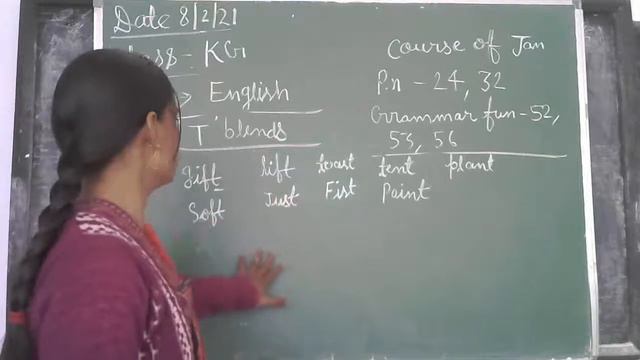 Date 8/2/21
KG
English
T' blends
Course of Jan
P.n - 24, 32
Grammar fun - 52,
53, 56
gift lift toast tent plant
Soft Just Fist Paint